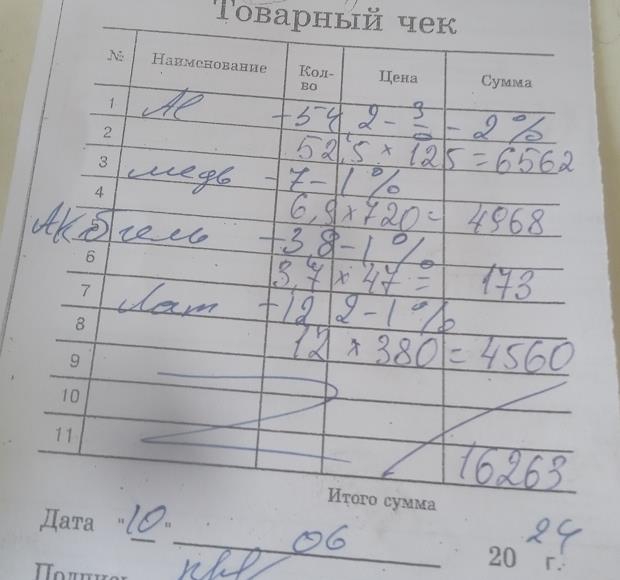 Товарный чек
№ Наименование Кол-во Цена Сумма
1 Al -54,2 - - 2%
2 52,5 × 125 = 6562
3 медь -7 - 1%
4 6,9 × 720 = 4968
5 Акб гель -3,8 - 1%
6 3,7 × 47 = 173
7 Лат -12,2 - 1%
8 12 × 380 = 4560
9
10
11 16263
Итого сумма
Дата "10" 06 2024 г.
Подпись